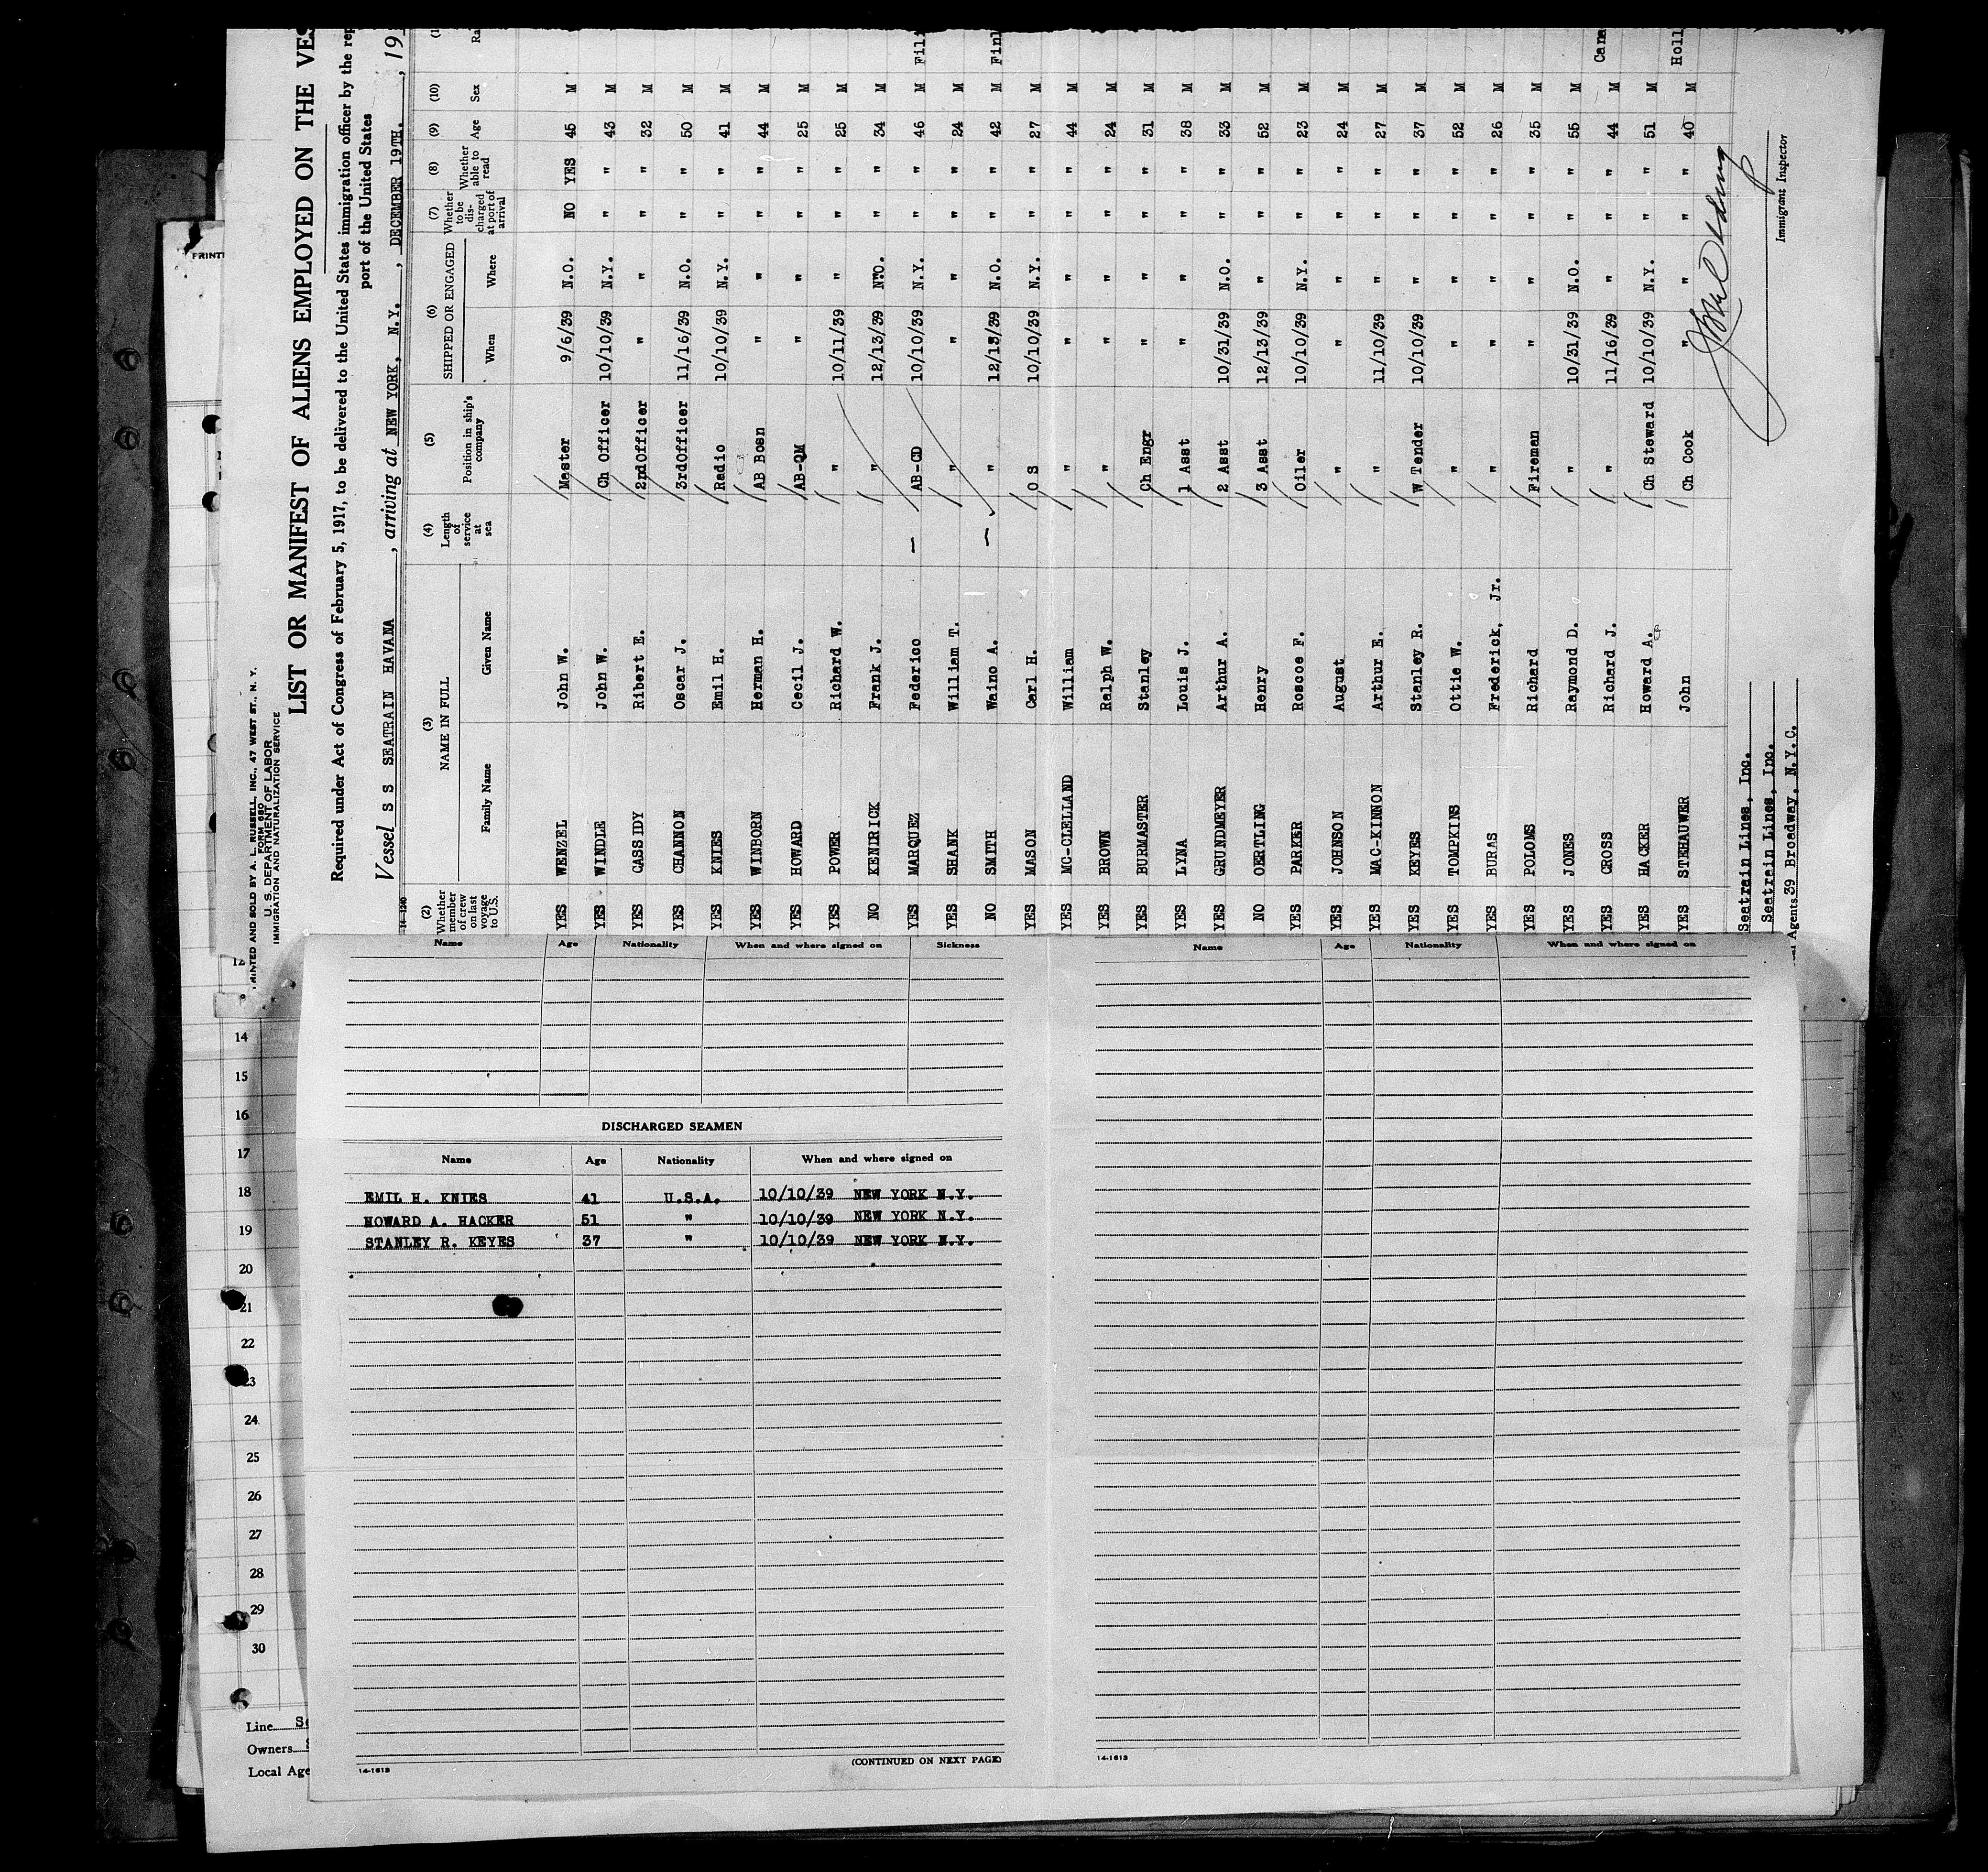 PRINTED AND SOLD BY A. L. RUSSELL, INC., 47 WEST ST., N. Y.
FORM 680
U. S. DEPARTMENT OF LABOR
IMMIGRATION AND NATURALIZATION SERVICE
LIST OR MANIFEST OF ALIENS EMPLOYED ON THE VES
Required under Act of Congress of February 5, 1917, to be delivered to the United States immigration officer by the rep
port of the United States
Vessel S S SEATRAIN HAVANA, arriving at NEW YORK, N.Y., DECEMBER 19TH., 19
14-1240
(2) Whether member of crew on last voyage to U.S. (3) NAME IN FULL Family Name Given Name (4) Length of service at sea (5) Position in ship's company (6) SHIPPED OR ENGAGED When Where (7) Whether to be discharged at port of arrival (8) Whether able to read (9) Age (10) Sex
YES WENZEL John W. Master 9/6/39 N.O. NO YES 45 M
YES WINDLE John W. Ch Officer 10/10/39 N.Y. " " 43 M
YES CASSIDY Ribert E. 2ndOfficer " " " " 32 M
YES CHANNON Oscar J. 3rdOfficer 11/16/39 N.O. " " 50 M
YES KNIES Emil H. Radio 10/10/39 N.Y. " " 41 M
YES WINBORN Herman H. AB Bosn " " " " 44 M
YES HOWARD Cecil J. AB-QM " " " " 25 M
YES POWER Richard W. " 10/11/39 " " " 25 M
NO KENDRICK Frank J. " 12/13/39 N.O. " " 34 M
YES MARQUEZ Federico — AB-CD 10/10/39 N.Y. " " 46 M Fili
YES SHANK William T. " " " " " 24 M
NO SMITH Waino A. — " 12/13/39 N.O. " " 42 M Finl
YES MASON Carl H. O S 10/10/39 N.Y. " " 27 M
YES MC-CLELLAND William " " " " " 44 M
YES BROWN Ralph W. " " " " " 24 M
YES BURMASTER Stanley Ch Engr " " " " 31 M
YES LYNA Louis J. 1 Asst " " " " 38 M
YES GRUNDMEYER Arthur A. 2 Asst 10/31/39 N.O. " " 33 M
NO OERTLING Henry 3 Asst 12/13/39 " " " 52 M
YES PARKER Roscoe F. Oiler 10/10/39 N.Y. " " 23 M
YES JOHNSON August " " " " " 24 M
YES MAC-KINNON Arthur E. " 11/10/39 " " " 27 M
YES KEYES Stanley R. W Tender 10/10/39 " " " 37 M
YES TOMPKINS Ottie W. " " " " " 52 M
YES BURAS Frederick, Jr. " " " " " 26 M
YES POLOMS Richard Fireman " " " " 35 M
YES JONES Raymond D. " 10/31/39 N.O. " " 55 M
YES CROSS Richard J. " 11/16/39 " " " 44 M Cana
YES HACKER Howard A. Ch Steward 10/10/39 N.Y. " " 51 M
YES STEHAUWER John Ch Cook " " " " 40 M Holl
Seatrain Lines, Inc.
Seatrain Lines, Inc.
Agents 39 Broadway, N.Y.C.
Immigrant Inspector
Name Age Nationality When and where signed on Sickness
Name Age Nationality When and where signed on
DISCHARGED SEAMEN
Name Age Nationality When and where signed on
EMIL H. KNIES 41 U.S.A. 10/10/39 NEW YORK N.Y.
HOWARD A. HACKER 51 " 10/10/39 NEW YORK N.Y.
STANLEY R. KEYES 37 " 10/10/39 NEW YORK N.Y.
(CONTINUED ON NEXT PAGE)
14-1613
14-1613
14
15
16
17
18
19
20
21
22
23
24
25
26
27
28
29
30
Line
Owners
Local Age